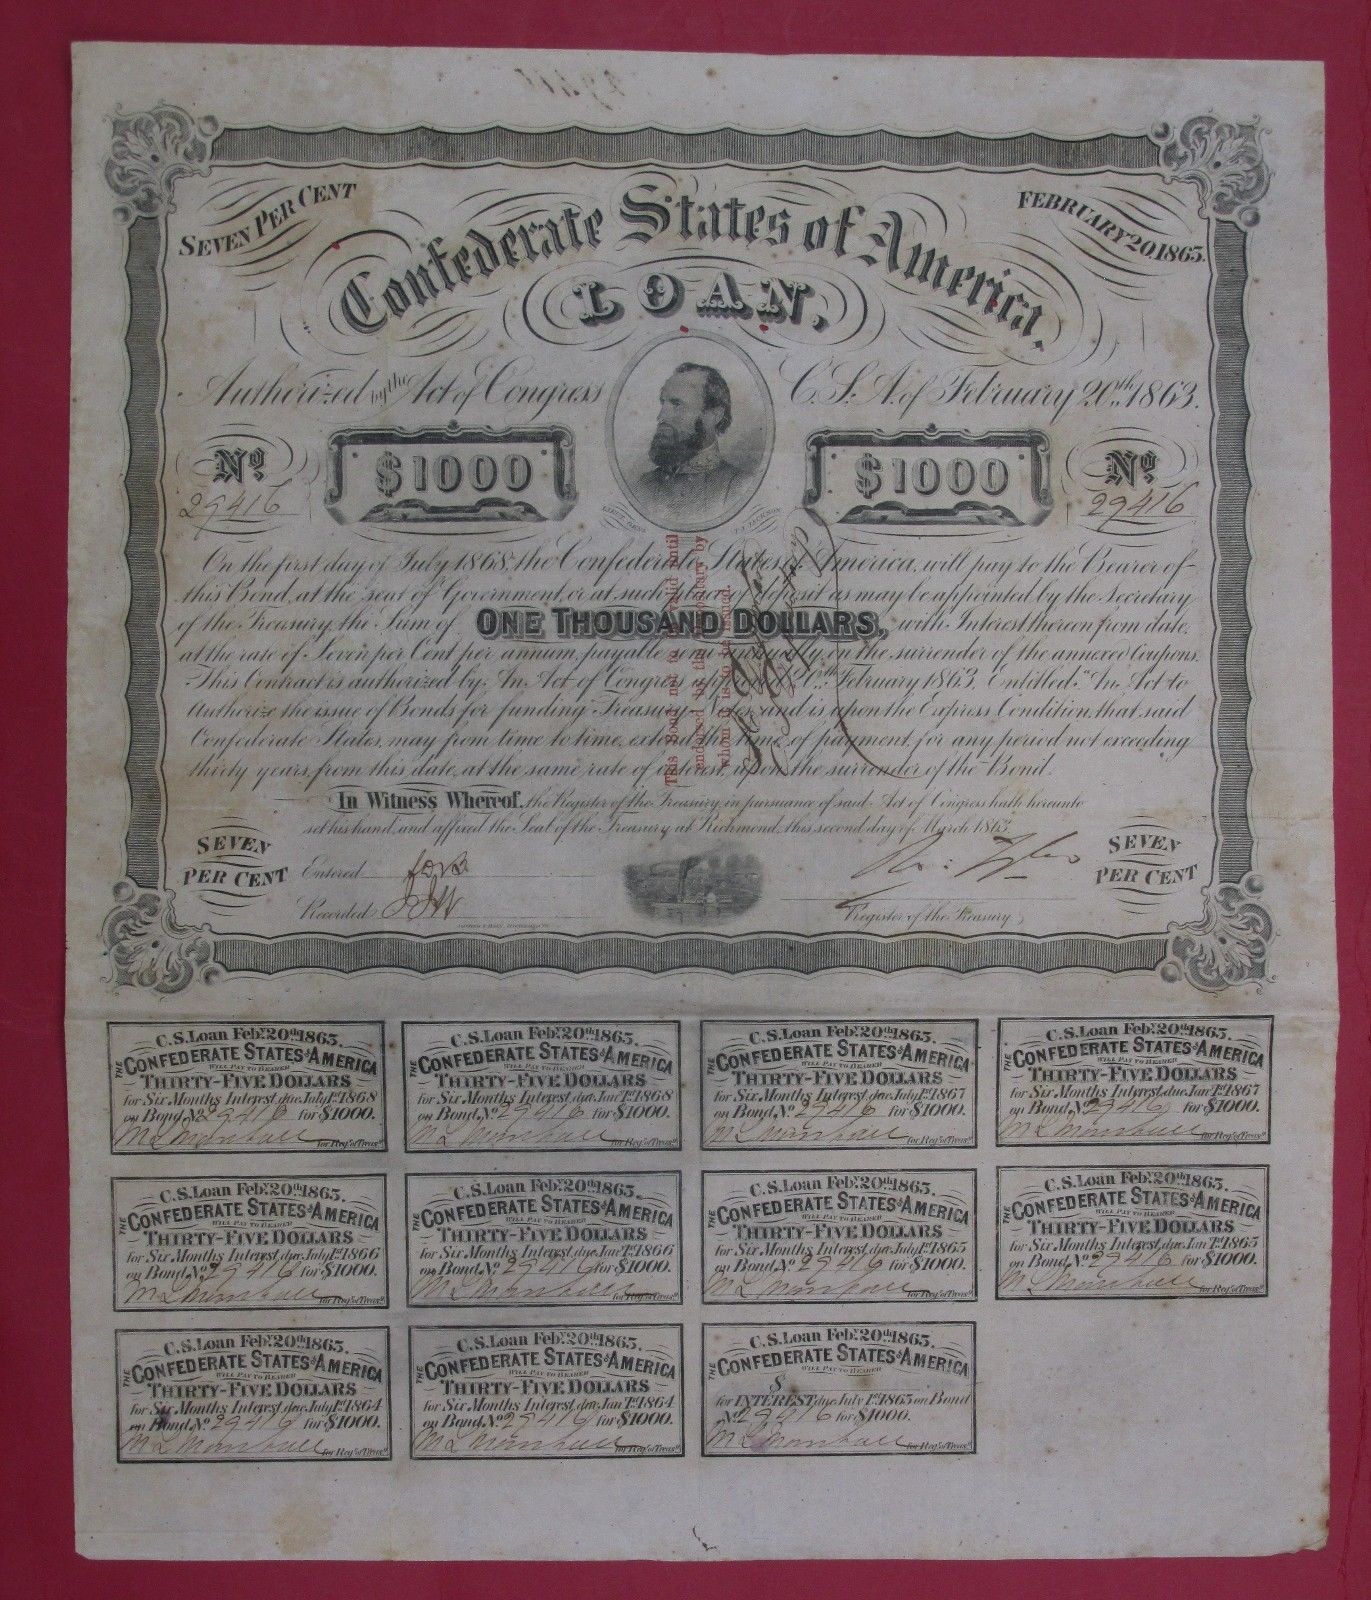 SEVEN PER CENT
FEBRUARY 20, 1863.
Confederate States of America.
LOAN,
Authorized by the Act of Congress
C.S.A. of February 20th 1863.
No
$1000
$1000
No
29416
29416
LIEUT. GENL.
T.J. JACKSON
On the first day of July 1868, the Confederate States of America, will pay to the Bearer of
this Bond, at the seat of Government, or at such place of deposit as may be appointed by the Secretary
of the Treasury, the Sum of ONE THOUSAND DOLLARS, with Interest thereon from date,
at the rate of Seven per Cent per annum, payable semi annually, on the surrender of the annexed Coupons.
This Contract is authorized by An Act of Congress approved 20th February 1863, Entitled, "An Act to
Authorize the issue of Bonds for funding Treasury Notes, and is upon the Express Condition, that said
Confederate States, may from time to time, extend the time of payment, for any period not exceeding
thirty years, from this date, at the same rate of interest, upon the surrender of the Bond.
This Bond not to be valid until
endorsed by the Depositary by
whom it is to be issued.
Depositary
In Witness Whereof, the Register of the Treasury, in pursuance of said Act of Congress hath hereunto
set his hand, and affixed the Seal of the Treasury at Richmond, this second day of March 1863.
SEVEN
PER CENT
Entered
Recorded
Register of the Treasury,
SEVEN
PER CENT
C.S. Loan Feby. 20th 1863.
THE CONFEDERATE STATES OF AMERICA
WILL PAY TO BEARER
THIRTY-FIVE DOLLARS
for Six Months Interest, due July 1st 1868
on Bond, No 29416 for $1000.
M L Marshall for Reg. of Treasy.
C.S. Loan Feby. 20th 1863.
THE CONFEDERATE STATES OF AMERICA
WILL PAY TO BEARER
THIRTY-FIVE DOLLARS
for Six Months Interest, due Jany 1st 1868
on Bond, No 29416 for $1000.
M L Marshall for Reg. of Treasy.
C.S. Loan Feby. 20th 1863.
THE CONFEDERATE STATES OF AMERICA
WILL PAY TO BEARER
THIRTY-FIVE DOLLARS
for Six Months Interest, due July 1st 1867
on Bond, No 29416 for $1000.
M L Marshall for Reg. of Treasy.
C.S. Loan Feby. 20th 1863.
THE CONFEDERATE STATES OF AMERICA
WILL PAY TO BEARER
THIRTY-FIVE DOLLARS
for Six Months Interest, due Jany 1st 1867
on Bond, No 29416 for $1000.
M L Marshall for Reg. of Treasy.
C.S. Loan Feby. 20th 1863.
THE CONFEDERATE STATES OF AMERICA
WILL PAY TO BEARER
THIRTY-FIVE DOLLARS
for Six Months Interest, due July 1st 1866
on Bond, No 29416 for $1000.
M L Marshall for Reg. of Treasy.
C.S. Loan Feby. 20th 1863.
THE CONFEDERATE STATES OF AMERICA
WILL PAY TO BEARER
THIRTY-FIVE DOLLARS
for Six Months Interest, due Jany 1st 1866
on Bond, No 29416 for $1000.
M L Marshall for Reg. of Treasy.
C.S. Loan Feby. 20th 1863.
THE CONFEDERATE STATES OF AMERICA
WILL PAY TO BEARER
THIRTY-FIVE DOLLARS
for Six Months Interest, due July 1st 1865
on Bond, No 29416 for $1000.
M L Marshall for Reg. of Treasy.
C.S. Loan Feby. 20th 1863.
THE CONFEDERATE STATES OF AMERICA
WILL PAY TO BEARER
THIRTY-FIVE DOLLARS
for Six Months Interest, due Jany 1st 1865
on Bond, No 29416 for $1000.
M L Marshall for Reg. of Treasy.
C.S. Loan Feby. 20th 1863.
THE CONFEDERATE STATES OF AMERICA
WILL PAY TO BEARER
THIRTY-FIVE DOLLARS
for Six Months Interest, due July 1st 1864
on Bond, No 29416 for $1000.
M L Marshall for Reg. of Treasy.
C.S. Loan Feby. 20th 1863.
THE CONFEDERATE STATES OF AMERICA
WILL PAY TO BEARER
THIRTY-FIVE DOLLARS
for Six Months Interest, due Jany 1st 1864
on Bond, No 29416 for $1000.
M L Marshall for Reg. of Treasy.
C.S. Loan Feby. 20th 1863.
THE CONFEDERATE STATES OF AMERICA
WILL PAY TO BEARER
$
for INTEREST, due July 1st 1863 on Bond
No 29416 for $1000.
M L Marshall for Reg. of Treasy.